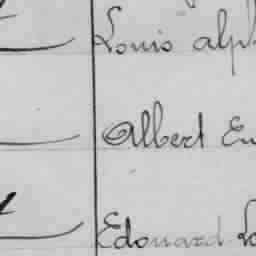 Louis alph
Albert Eu
Edouard Lo